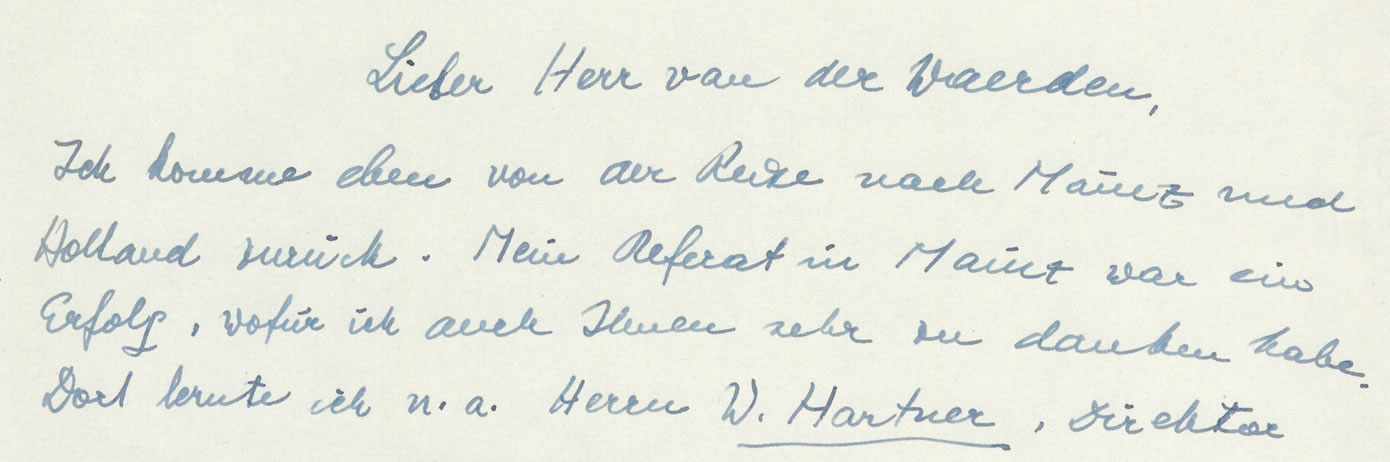 Lieber Herr van der Waerden,
Ich komme eben von der Reise nach Mainz und
Holland zurück. Mein Referat in Mainz war ein
Erfolg, wofür ich auch Ihnen sehr zu danken habe.
Dort lernte ich u. a. Herrn W. Hartner, Direktor